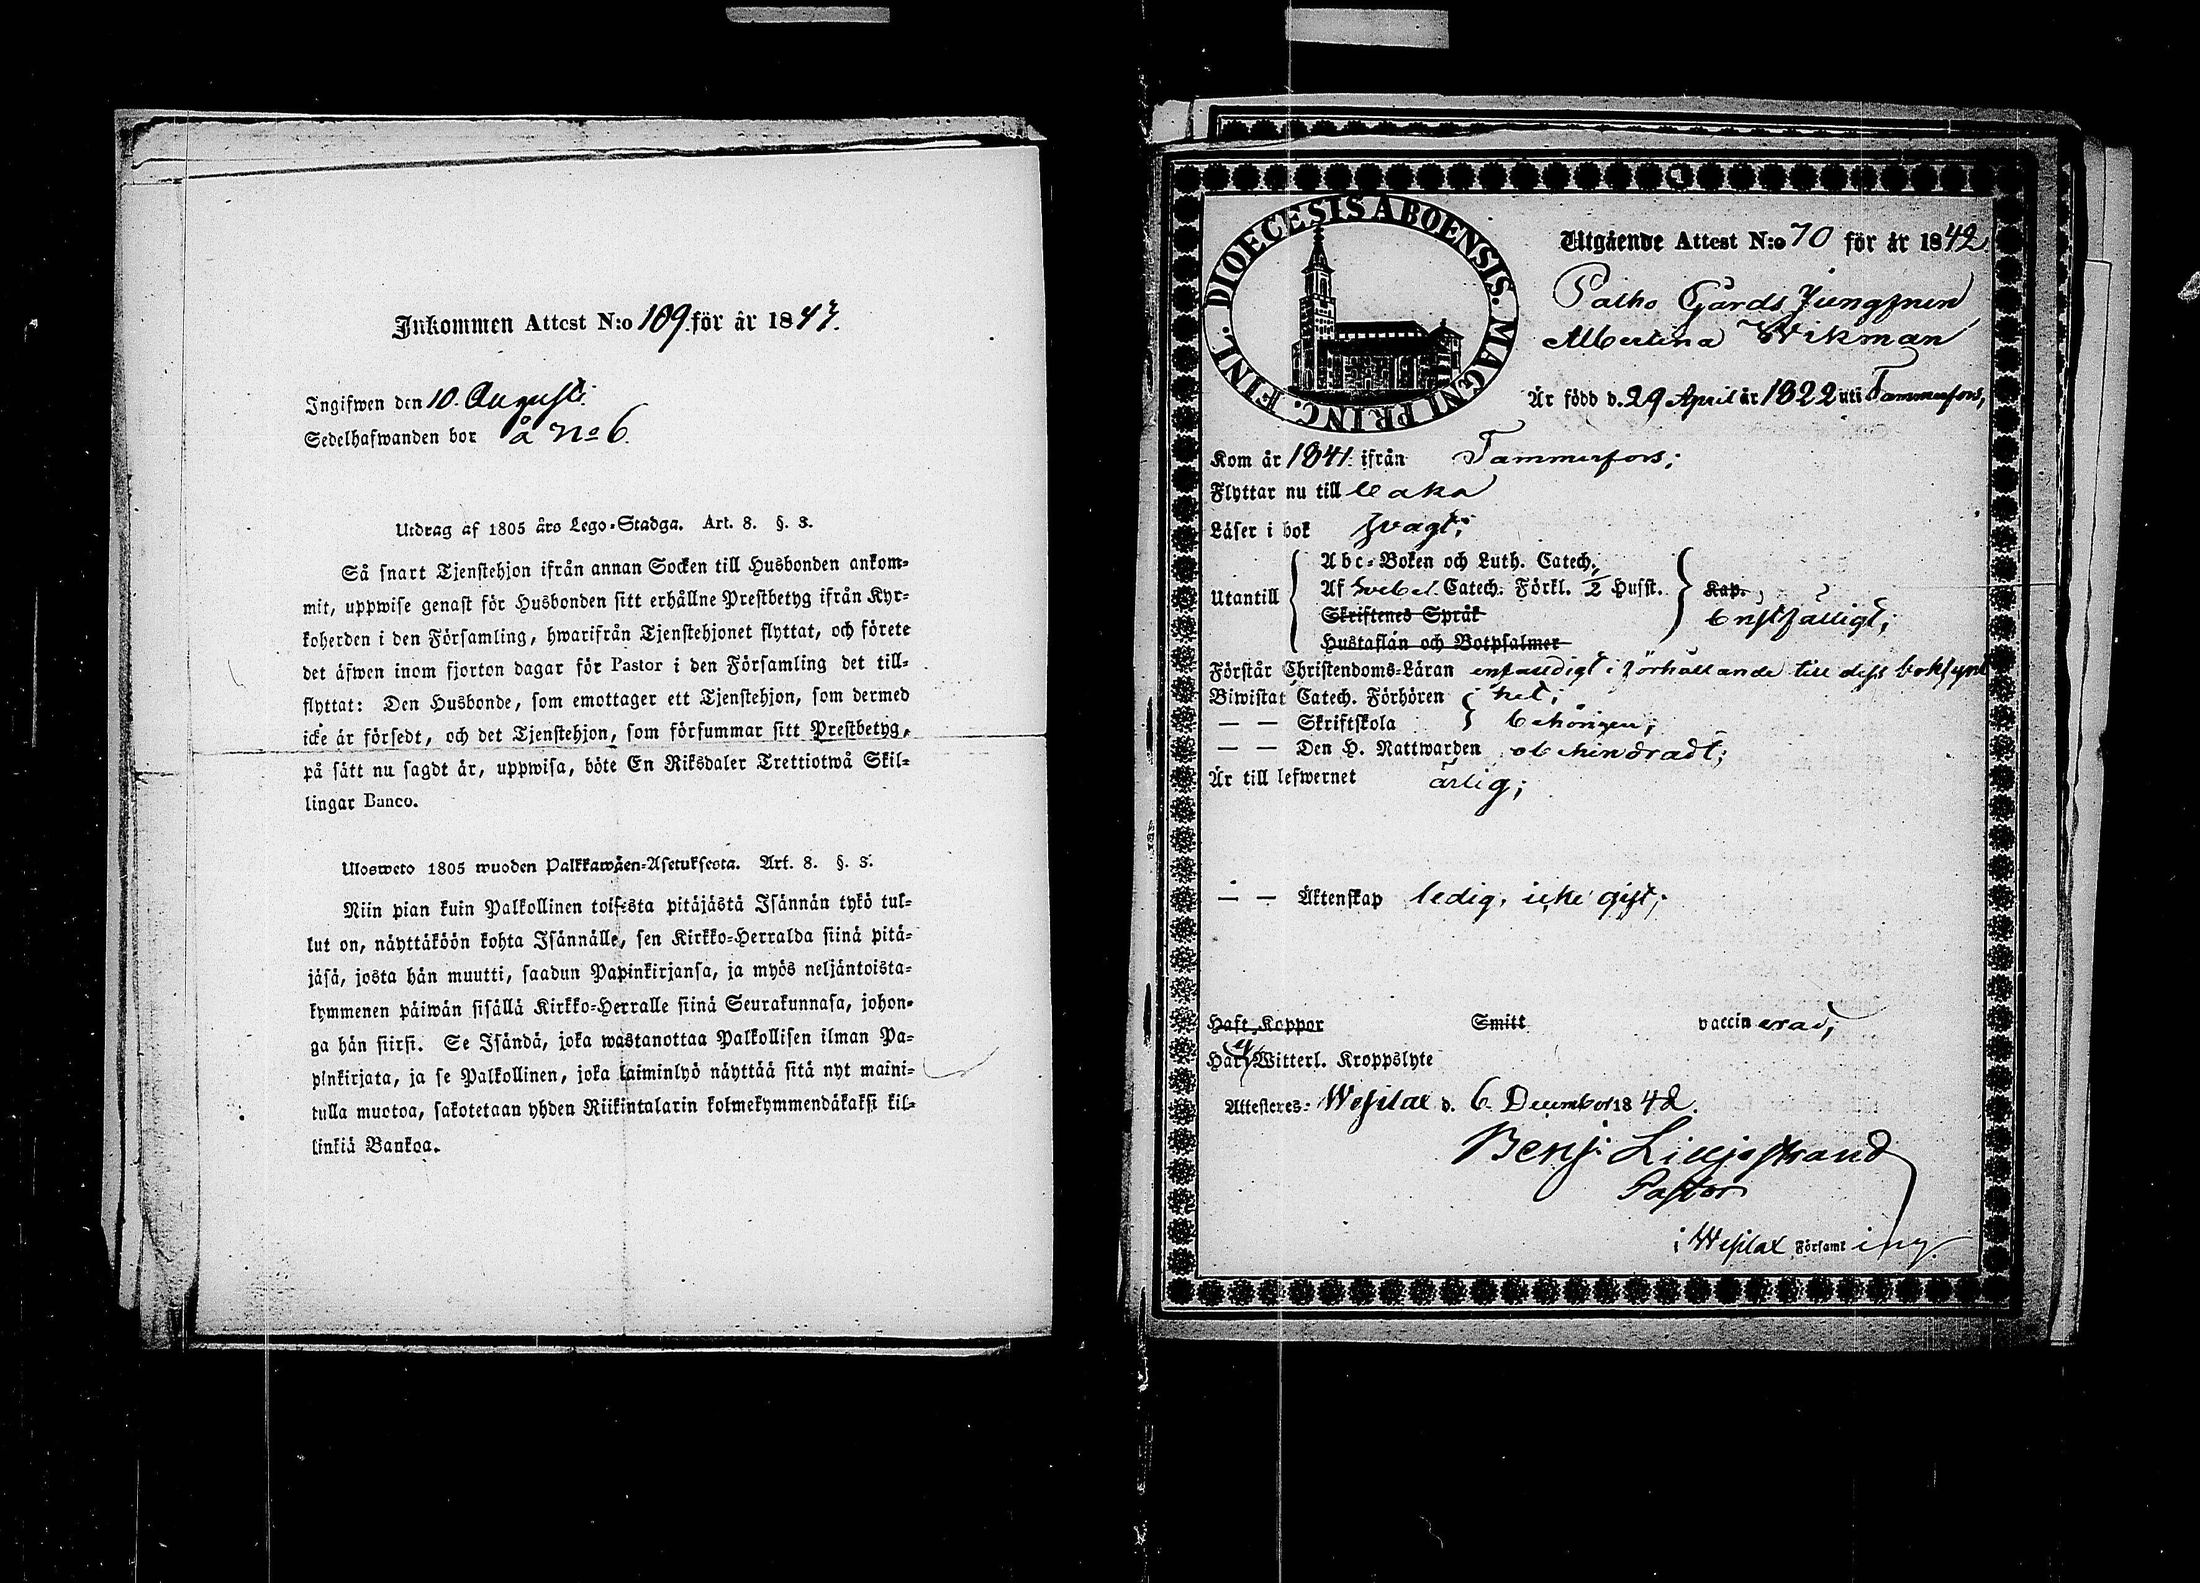 Inkommen Attest N:o 109. för år 1847.
Ingifwen den 10. Augusti.
Sedelhafwanden bor å No 6.
Utdrag af 1805 års Lego-Stadga. Art. 8. §. 3.
Så snart Tjenstehjon ifrån annan Socken till Husbonden ankom-
mit, uppwise genast för Husbonden sitt erhållne Prestbetyg ifrån Kyr-
koherden i den Församling, hwarifrån Tjenstehjonet flyttat, och förete
det äfwen inom fjorton dagar för Pastor i den Församling det till-
flyttat: Den Husbonde, som emottager ett Tjenstehjon, som dermed
icke är försedt, och det Tjenstehjon, som försummar sitt Prestbetyg,
på sätt nu sagdt är, uppwisa, böte En Riksdaler Trettiotwå Skil-
lingar Banco.
Ulosweto 1805 wuoden Palkkawäen-Asetuksesta. Art. 8. §. 3.
Niin pian kuin Palkollinen toisesta pitäjästä Isännän tykö tul-
lut on, näyttäköön kohta Isännälle, sen Kirkko-Herralda siinä pitä-
jäsä, josta hän muutti, saadun Papinkirjansa, ja myös neljäntoista-
kymmenen päiwän sisällä Kirkko-Herralle siinä Seurakunnasa, johon-
ga hän siirsi. Se Isändä, joka wastanottaa Palkollisen ilman Pa-
pinkirjata, ja se Palkollinen, joka laiminlyö näyttää sitä nyt maini-
tulla muotoa, sakotetaan yhden Riikintalarin kolmekymmendäkaksi kil-
linkiä Bankoa.
DIOECESIS ABOENSIS. MAGNI PRINC. FINL.
Utgående Attest N:o 70 för år 1842.
Palho Gårds Jungfrun
Albertina Wikman
Är född d. 29 April år 1822 uti Tammerfors,
Kom år 1841. ifrån Tammerfors;
Flyttar nu till
Läser i bok svagt;
Utantill
Abc-Boken och Luth. Catech.
Af Svebel. Catech. Förkl. 1/2 Husst.
Skriftenes Språk
Hustaflan och Botpsalmer
Kap.
enfaldigt;
Förstår Christendoms-Läran enfaldigt i förhållande till dess
Biwistat Catech. Förhören
— — Skriftskola behörigen;
— — Den H. Nattwarden obehindradt;
Är till lefwernet ärlig;
— — Äktenskap ledig, icke gift;
Haft Koppor Smitt vaccinerad;
Har ej Witterl. Kroppslyte
Attesteres: Westlax d. 6 December 1842.
Benj. Lilljestrand
Pastor
i Westlax Församling.